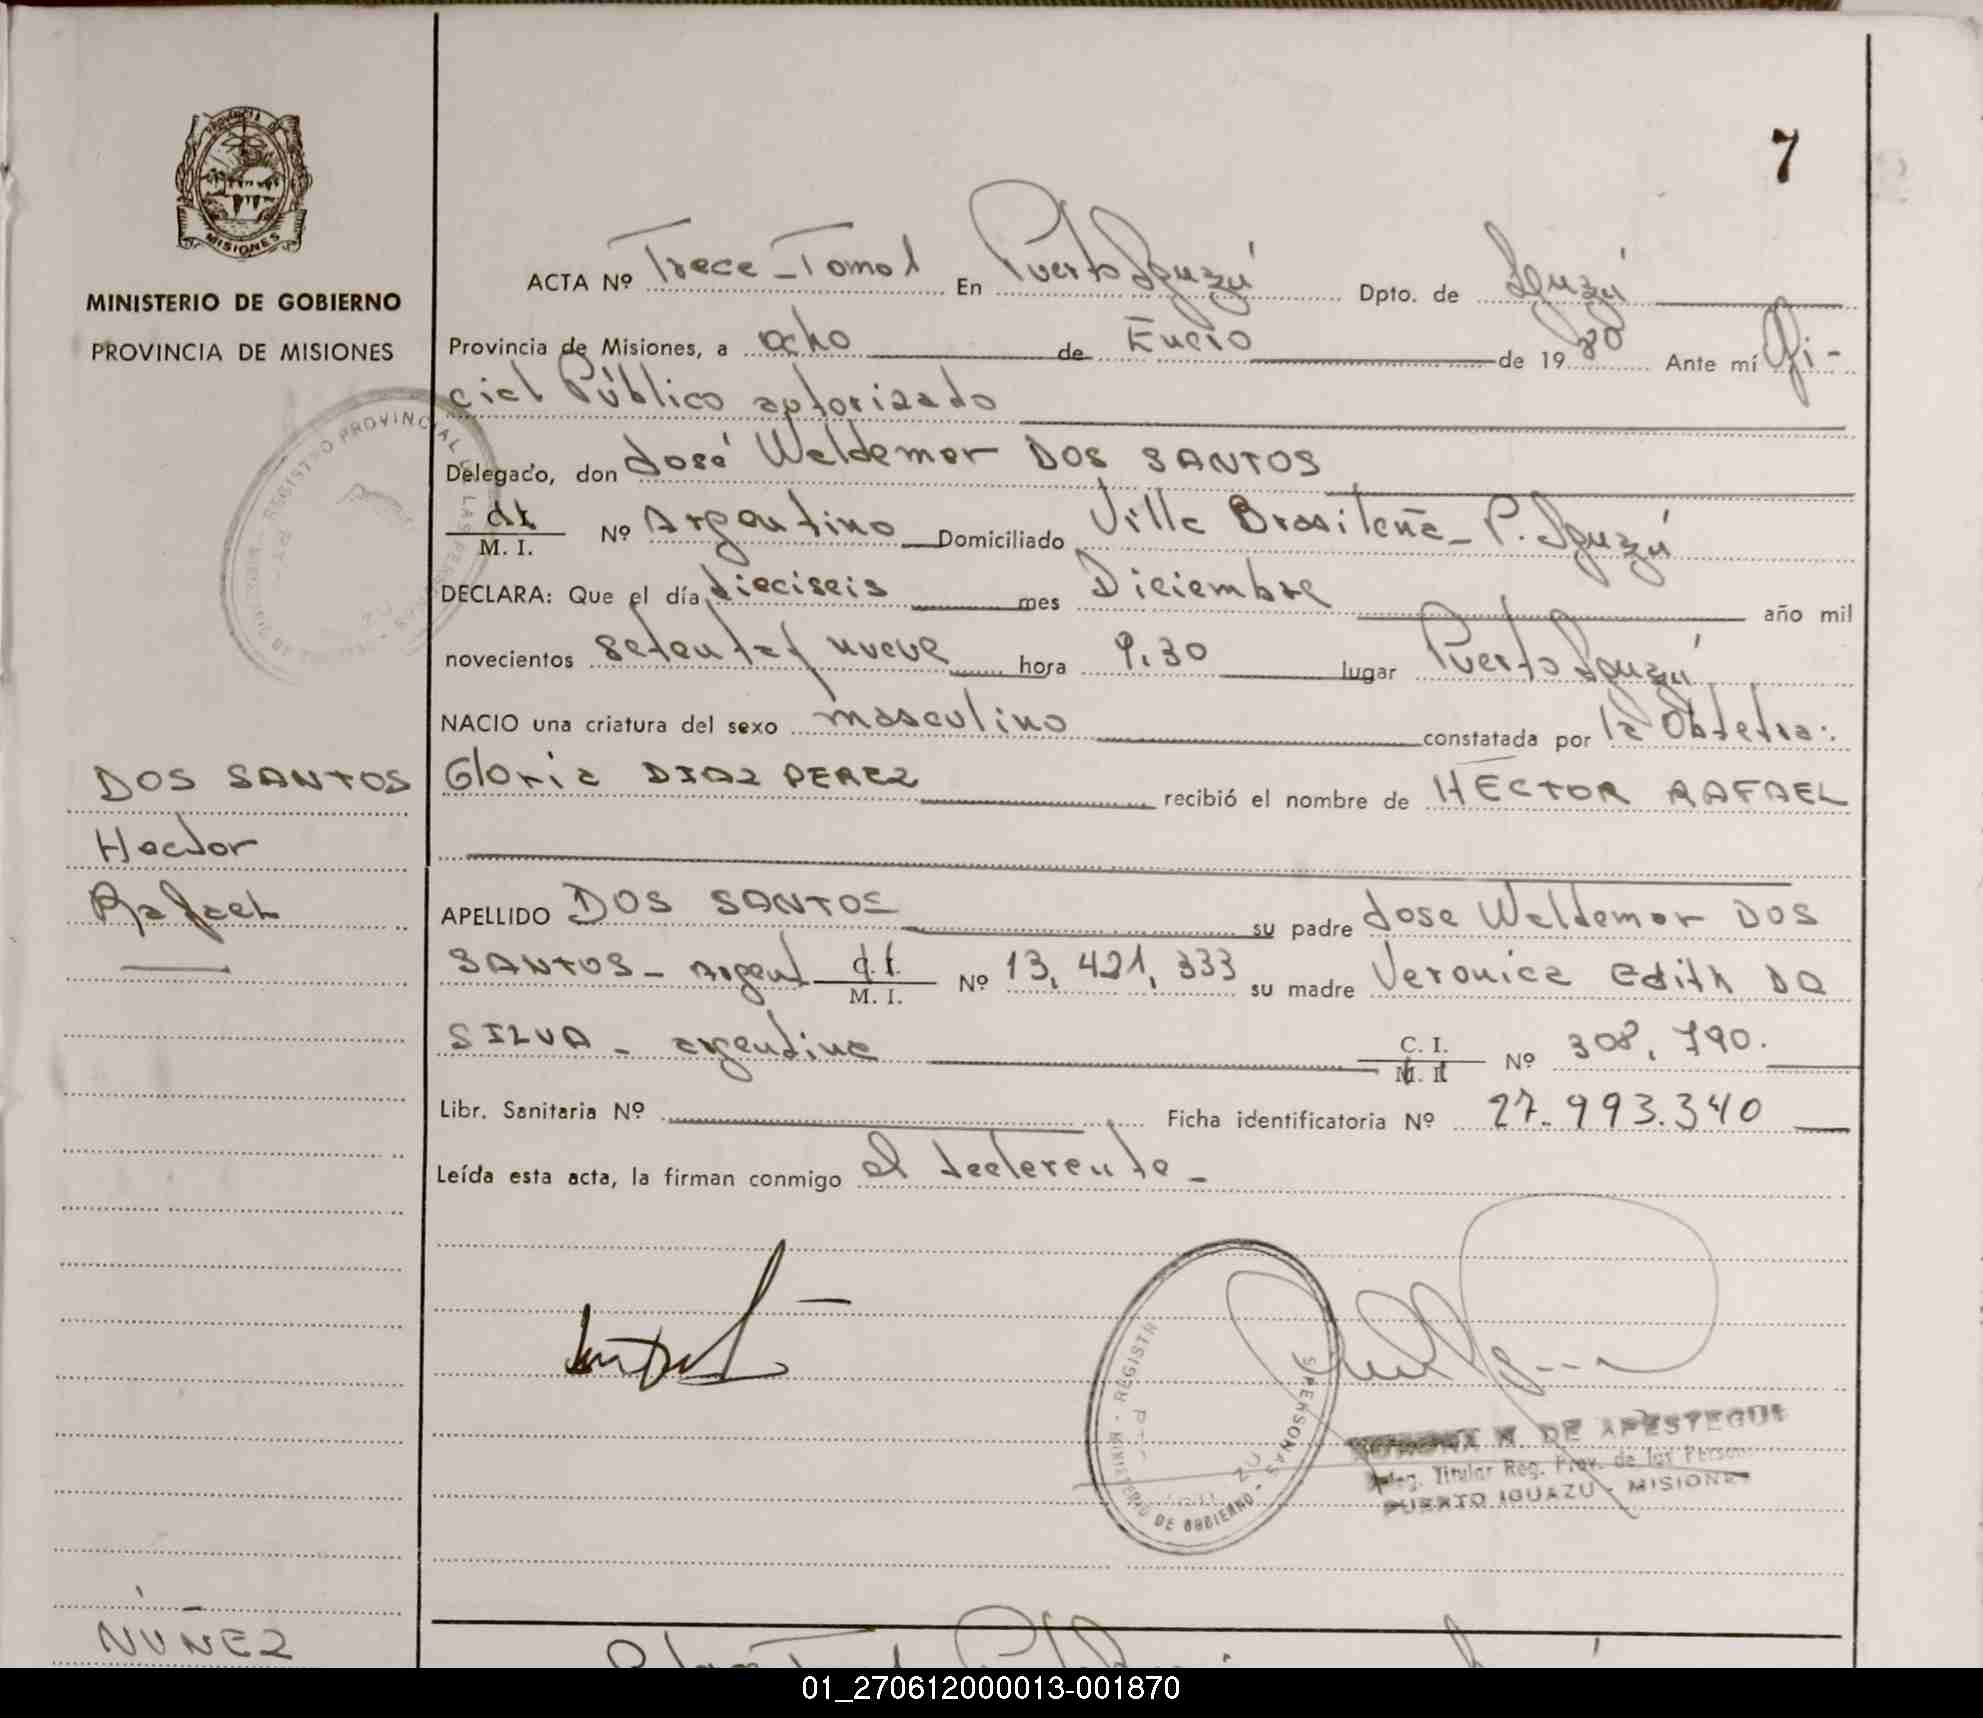 7
PROVINCIA DE
MISIONES
MINISTERIO DE GOBIERNO
PROVINCIA DE MISIONES
ACTA Nº Trece - Tomo 1 En Puerto Iguazú Dpto. de Iguazú
Provincia de Misiones, a ocho de Enero de 1980 Ante mí Ofi-
cial Público autorizado
Delegado, don José Waldemar DOS SANTOS
d.i. M. I. Nº Argentino Domiciliado Villa Brasileña - P. Iguazú
DECLARA: Que el día dieciseis mes Diciembre año mil
novecientos setenta y nueve hora 9,30 lugar Puerto Iguazú
NACIO una criatura del sexo masculino constatada por la Obstetra:
Gloria DIAZ PEREZ recibió el nombre de HÉCTOR RAFAEL
DOS SANTOS
Hector
Rafael
APELLIDO DOS SANTOS su padre Jose Waldemar DOS
SANTOS - Argent d.i. M. I. Nº 13,421,333 su madre Veronica Edith DA
SILVA - argentina C. I. M. I. Nº 308,790.
Libr. Sanitaria Nº Ficha identificatoria Nº 27.993.340
Leída esta acta, la firman conmigo el declarante -
REGISTRO PROVINCIAL DE LAS PERSONAS
MINISTERIO DE GOBIERNO - REGISTR
S PERSONAS
DE APESTEGUI
Deleg. Titular Reg. Prov. de las Person
PUERTO IGUAZU - MISIONES
NÚÑEZ
01_270612000013-001870